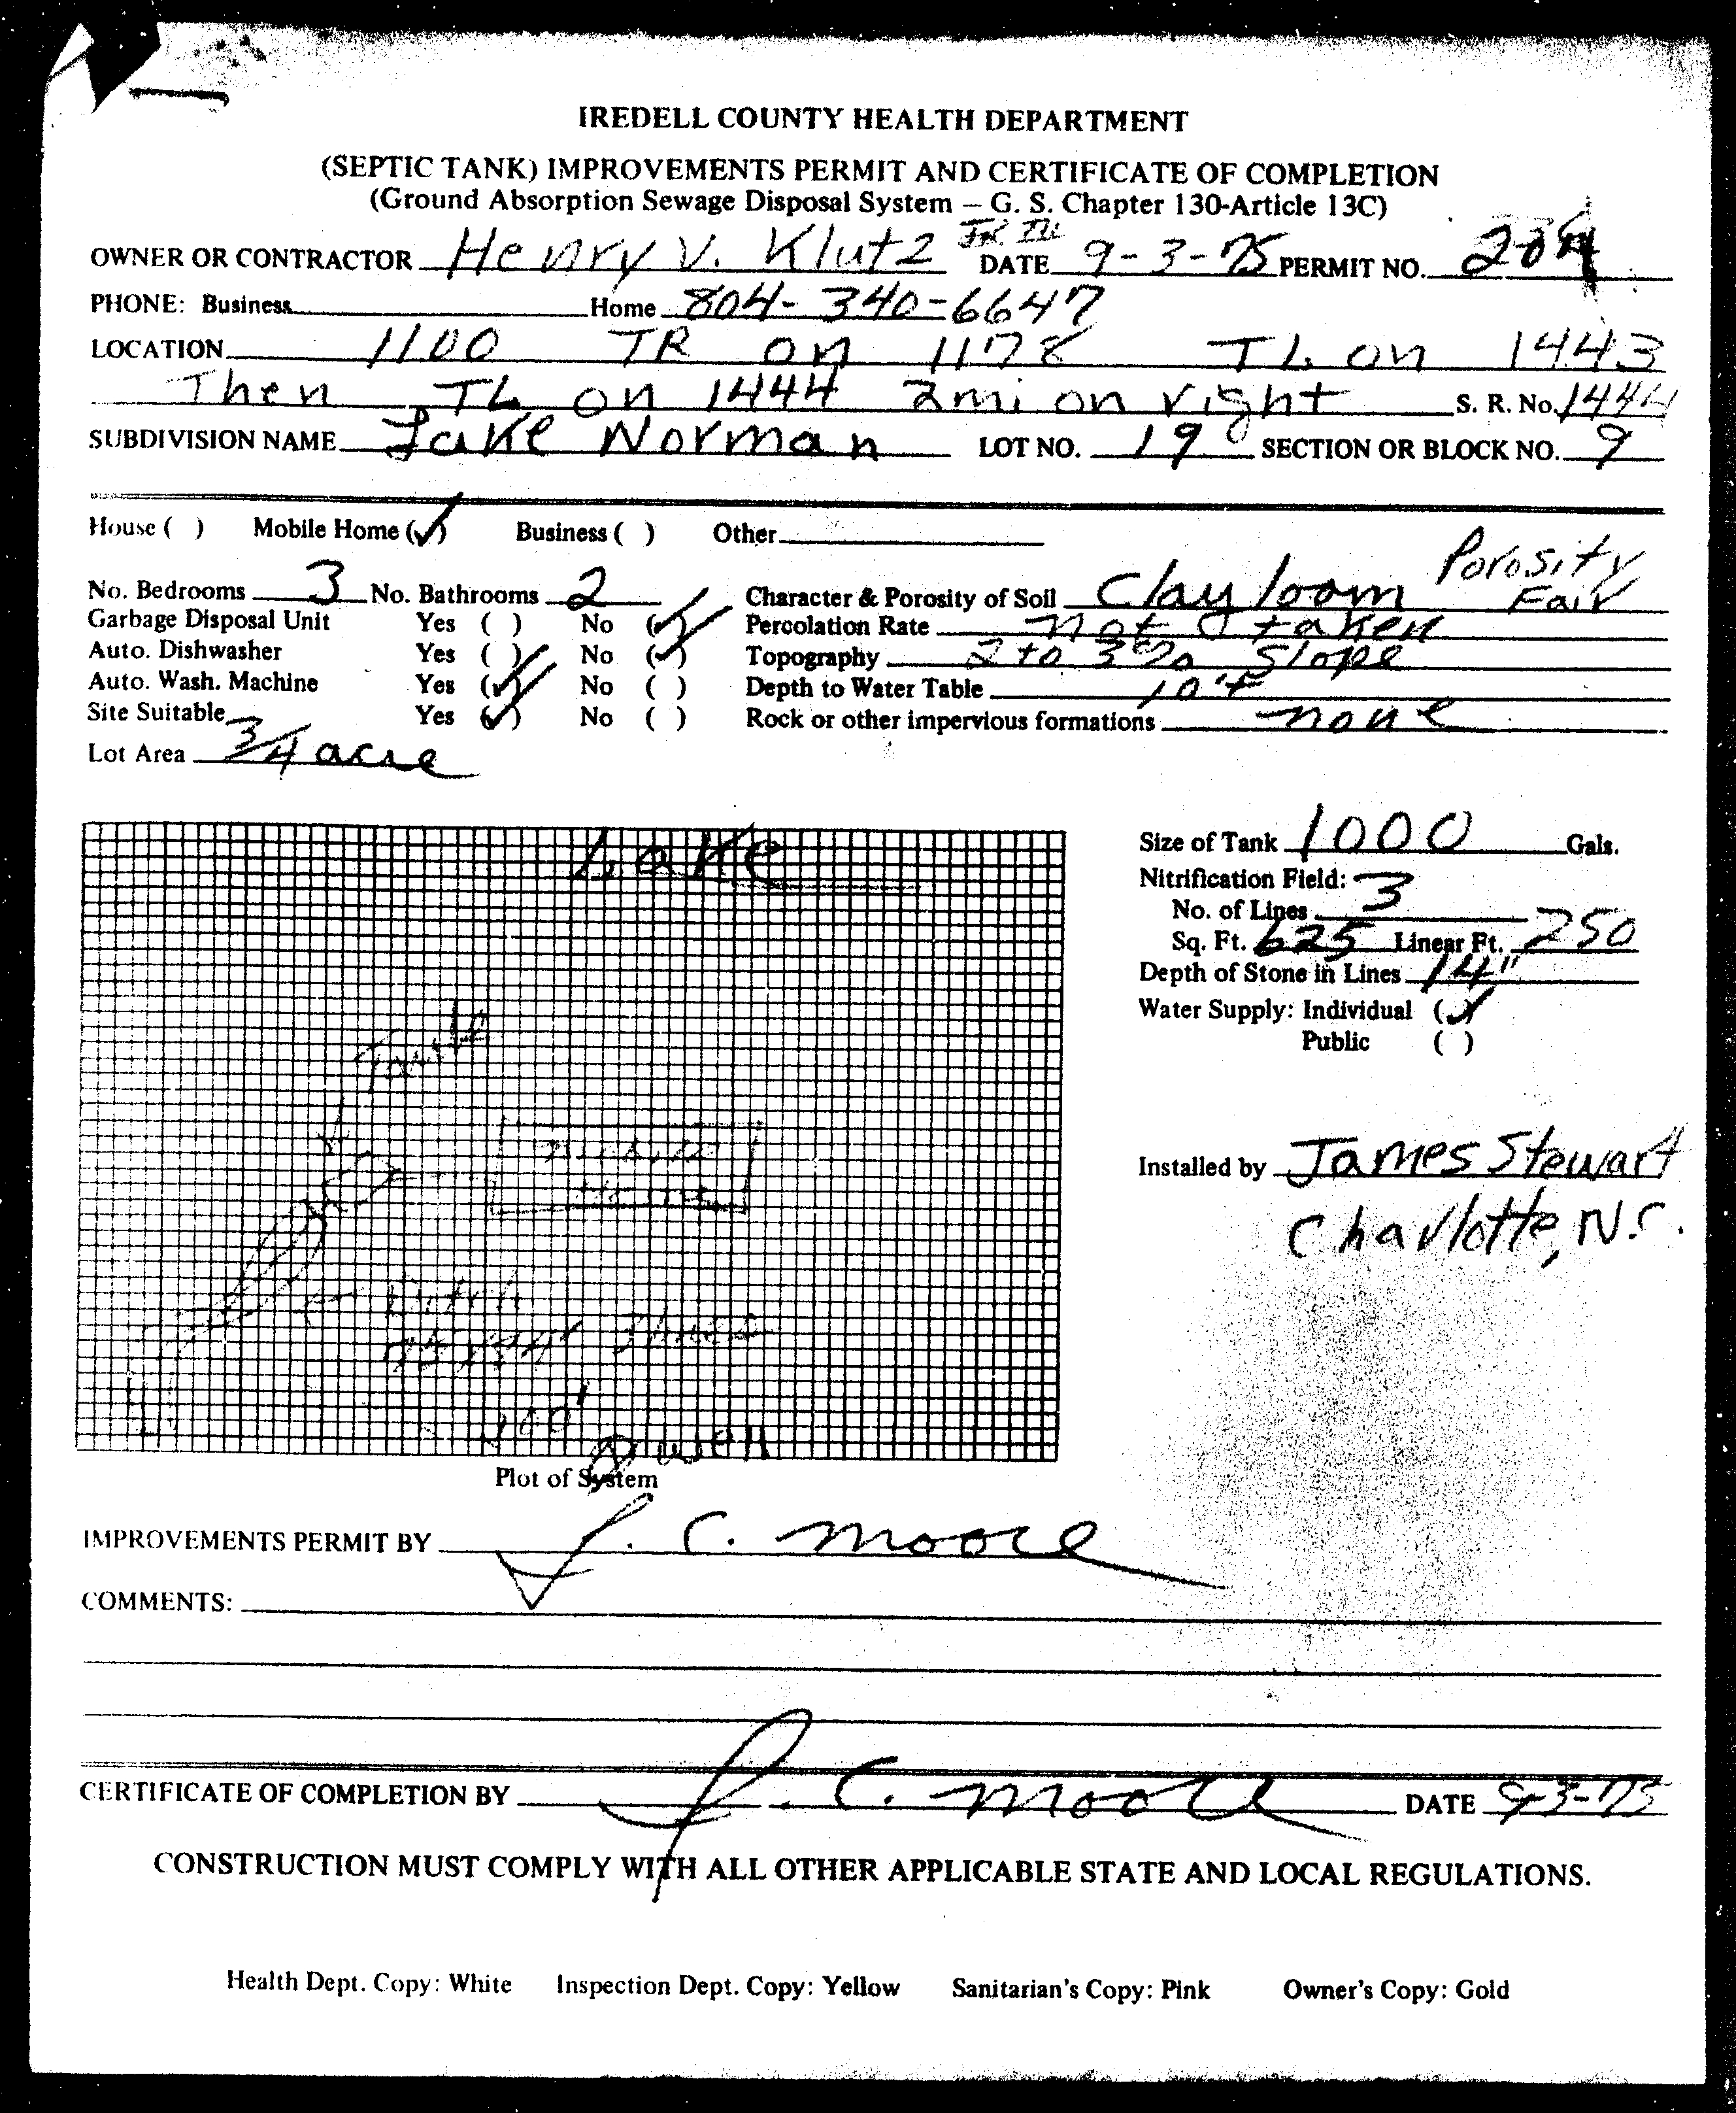 IREDELL COUNTY HEALTH DEPARTMENT
(SEPTIC TANK) IMPROVEMENTS PERMIT AND CERTIFICATE OF COMPLETION
(Ground Absorption Sewage Disposal System – G. S. Chapter 130-Article 13C)
OWNER OR CONTRACTOR Henry V. Klutz JR III DATE 9-3-75 PERMIT NO.
PHONE: Business Home 804-340-6647
LOCATION 1100 TR on 1178 TL on 1443
Then TL on 1444 2mi on right S. R. No. 1444
SUBDIVISION NAME Lake Norman LOT NO. 19 SECTION OR BLOCK NO. 9
House ( ) Mobile Home (✓) Business ( ) Other
No. Bedrooms 3 No. Bathrooms 2 Character & Porosity of Soil Clay loam Porosity Fair
Garbage Disposal Unit Yes ( ) No (✓) Percolation Rate not taken
Auto. Dishwasher Yes ( ) No (✓) Topography 2 to 3% Slope
Auto. Wash. Machine Yes (✓) No ( ) Depth to Water Table 10'+
Site Suitable Yes (✓) No ( ) Rock or other impervious formations none
Lot Area 3/4 acre
Lake
Size of Tank 1000 Gals.
Nitrification Field:
No. of Lines 3
Sq. Ft. 625 Linear Ft. 250
Depth of Stone in Lines 14"
Water Supply: Individual (✓)
Public ( )
Tank
Mobile
Home
Installed by James Stewart
Charlotte, N.C.
Ditch
3 lines
100'
well
Plot of System
IMPROVEMENTS PERMIT BY J. C. Moore
COMMENTS:
CERTIFICATE OF COMPLETION BY J. C. Moore DATE 9-3-75
CONSTRUCTION MUST COMPLY WITH ALL OTHER APPLICABLE STATE AND LOCAL REGULATIONS.
Health Dept. Copy: White Inspection Dept. Copy: Yellow Sanitarian's Copy: Pink Owner's Copy: Gold